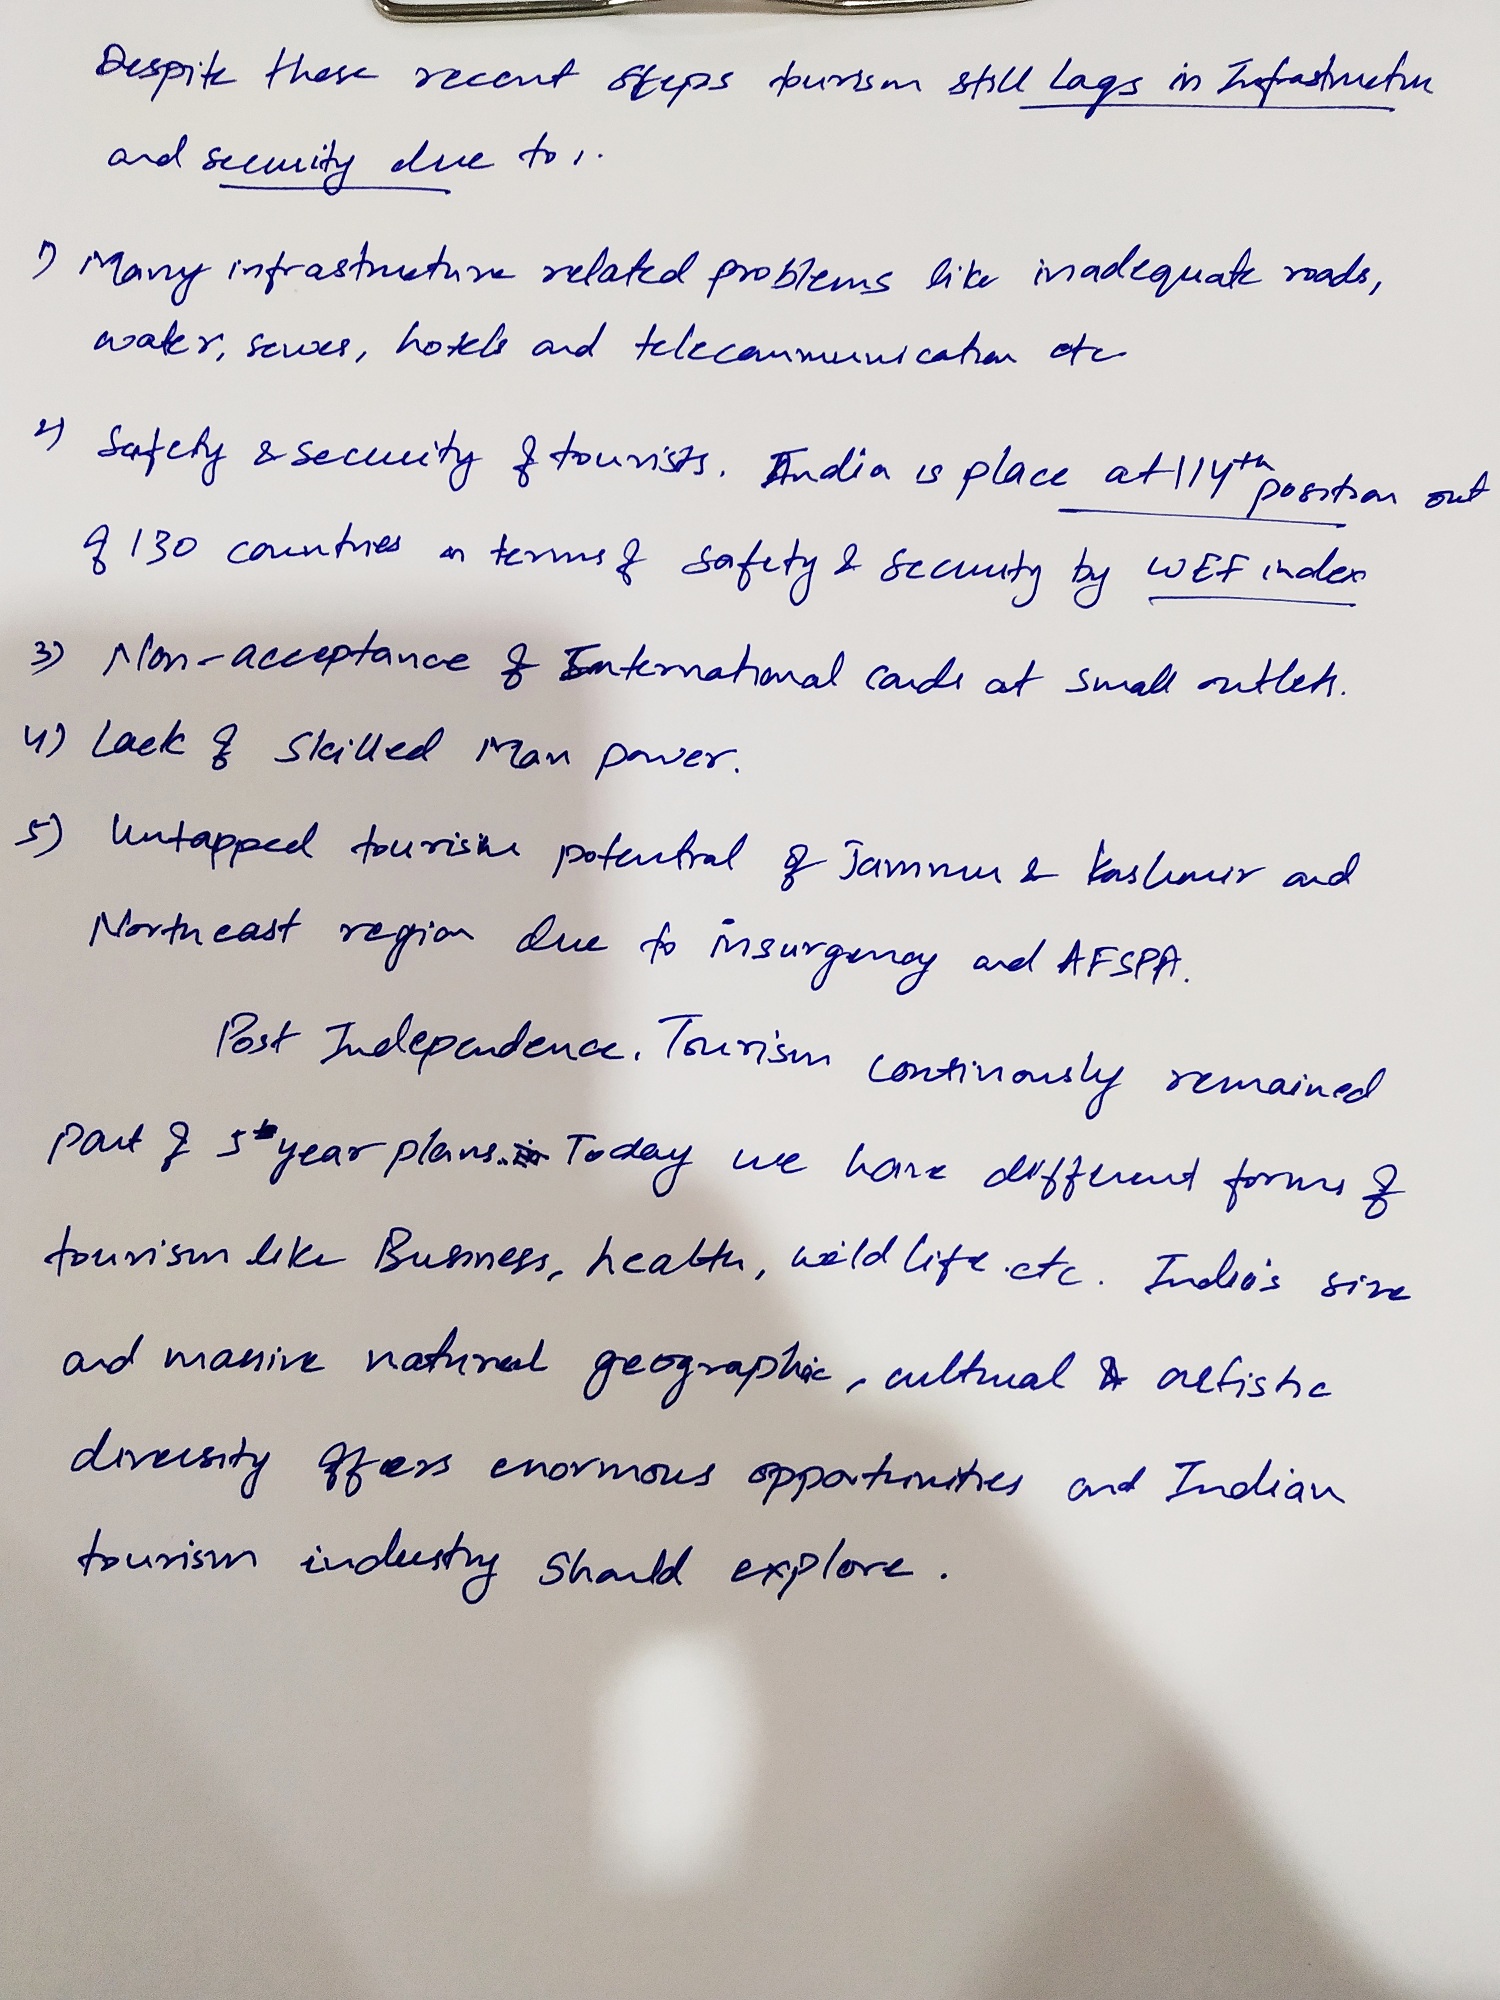 Despite these recent steps tourism still lags in Infrastructure
and security due to :.
1) Many infrastructure related problems like inadequate roads,
water, sewer, hotels and telecommunication etc
2) Safety & security of tourists. India is place at 114th position out
of 130 countries in terms of safety & security by WEF index
3) Non-acceptance of International cards at small outlets.
4) Lack of Skilled Man power.
5) Untapped tourism potential of Jammu & Kashmir and
Northeast region due to insurgency and AFSPA.
Post Independence, Tourism continously remained
part of 5 year plans. Today we have different forms of
tourism like Business, health, wild life etc. India's size
and massive natural geographic, cultural & artistic
diversity offers enormous opportunities and Indian
tourism industry should explore.